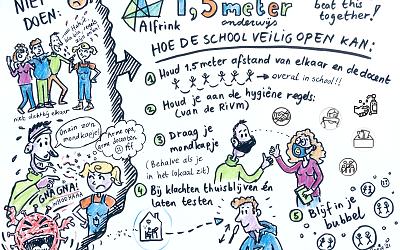 NIET
DOEN:
niet dichtbij elkaar
Onzin zo'n
mondkapje!
Arme opa,
arme docenten
GHAGNA!
Alfrink
1,5 meter
onderwijs
beat this
together!
HOE DE SCHOOL VEILIG OPEN KAN:
1 Houd 1.5 meter afstand van elkaar en de docent
→ overal in school!!
2 Houd je aan de hygiëne regels:
(van de RIVM)
3 Draag je
mondkapje
(Behalve als je
in het lokaal zit)
4 Bij klachten thuisblijven én
laten testen
5 Blijf in je
bubbel